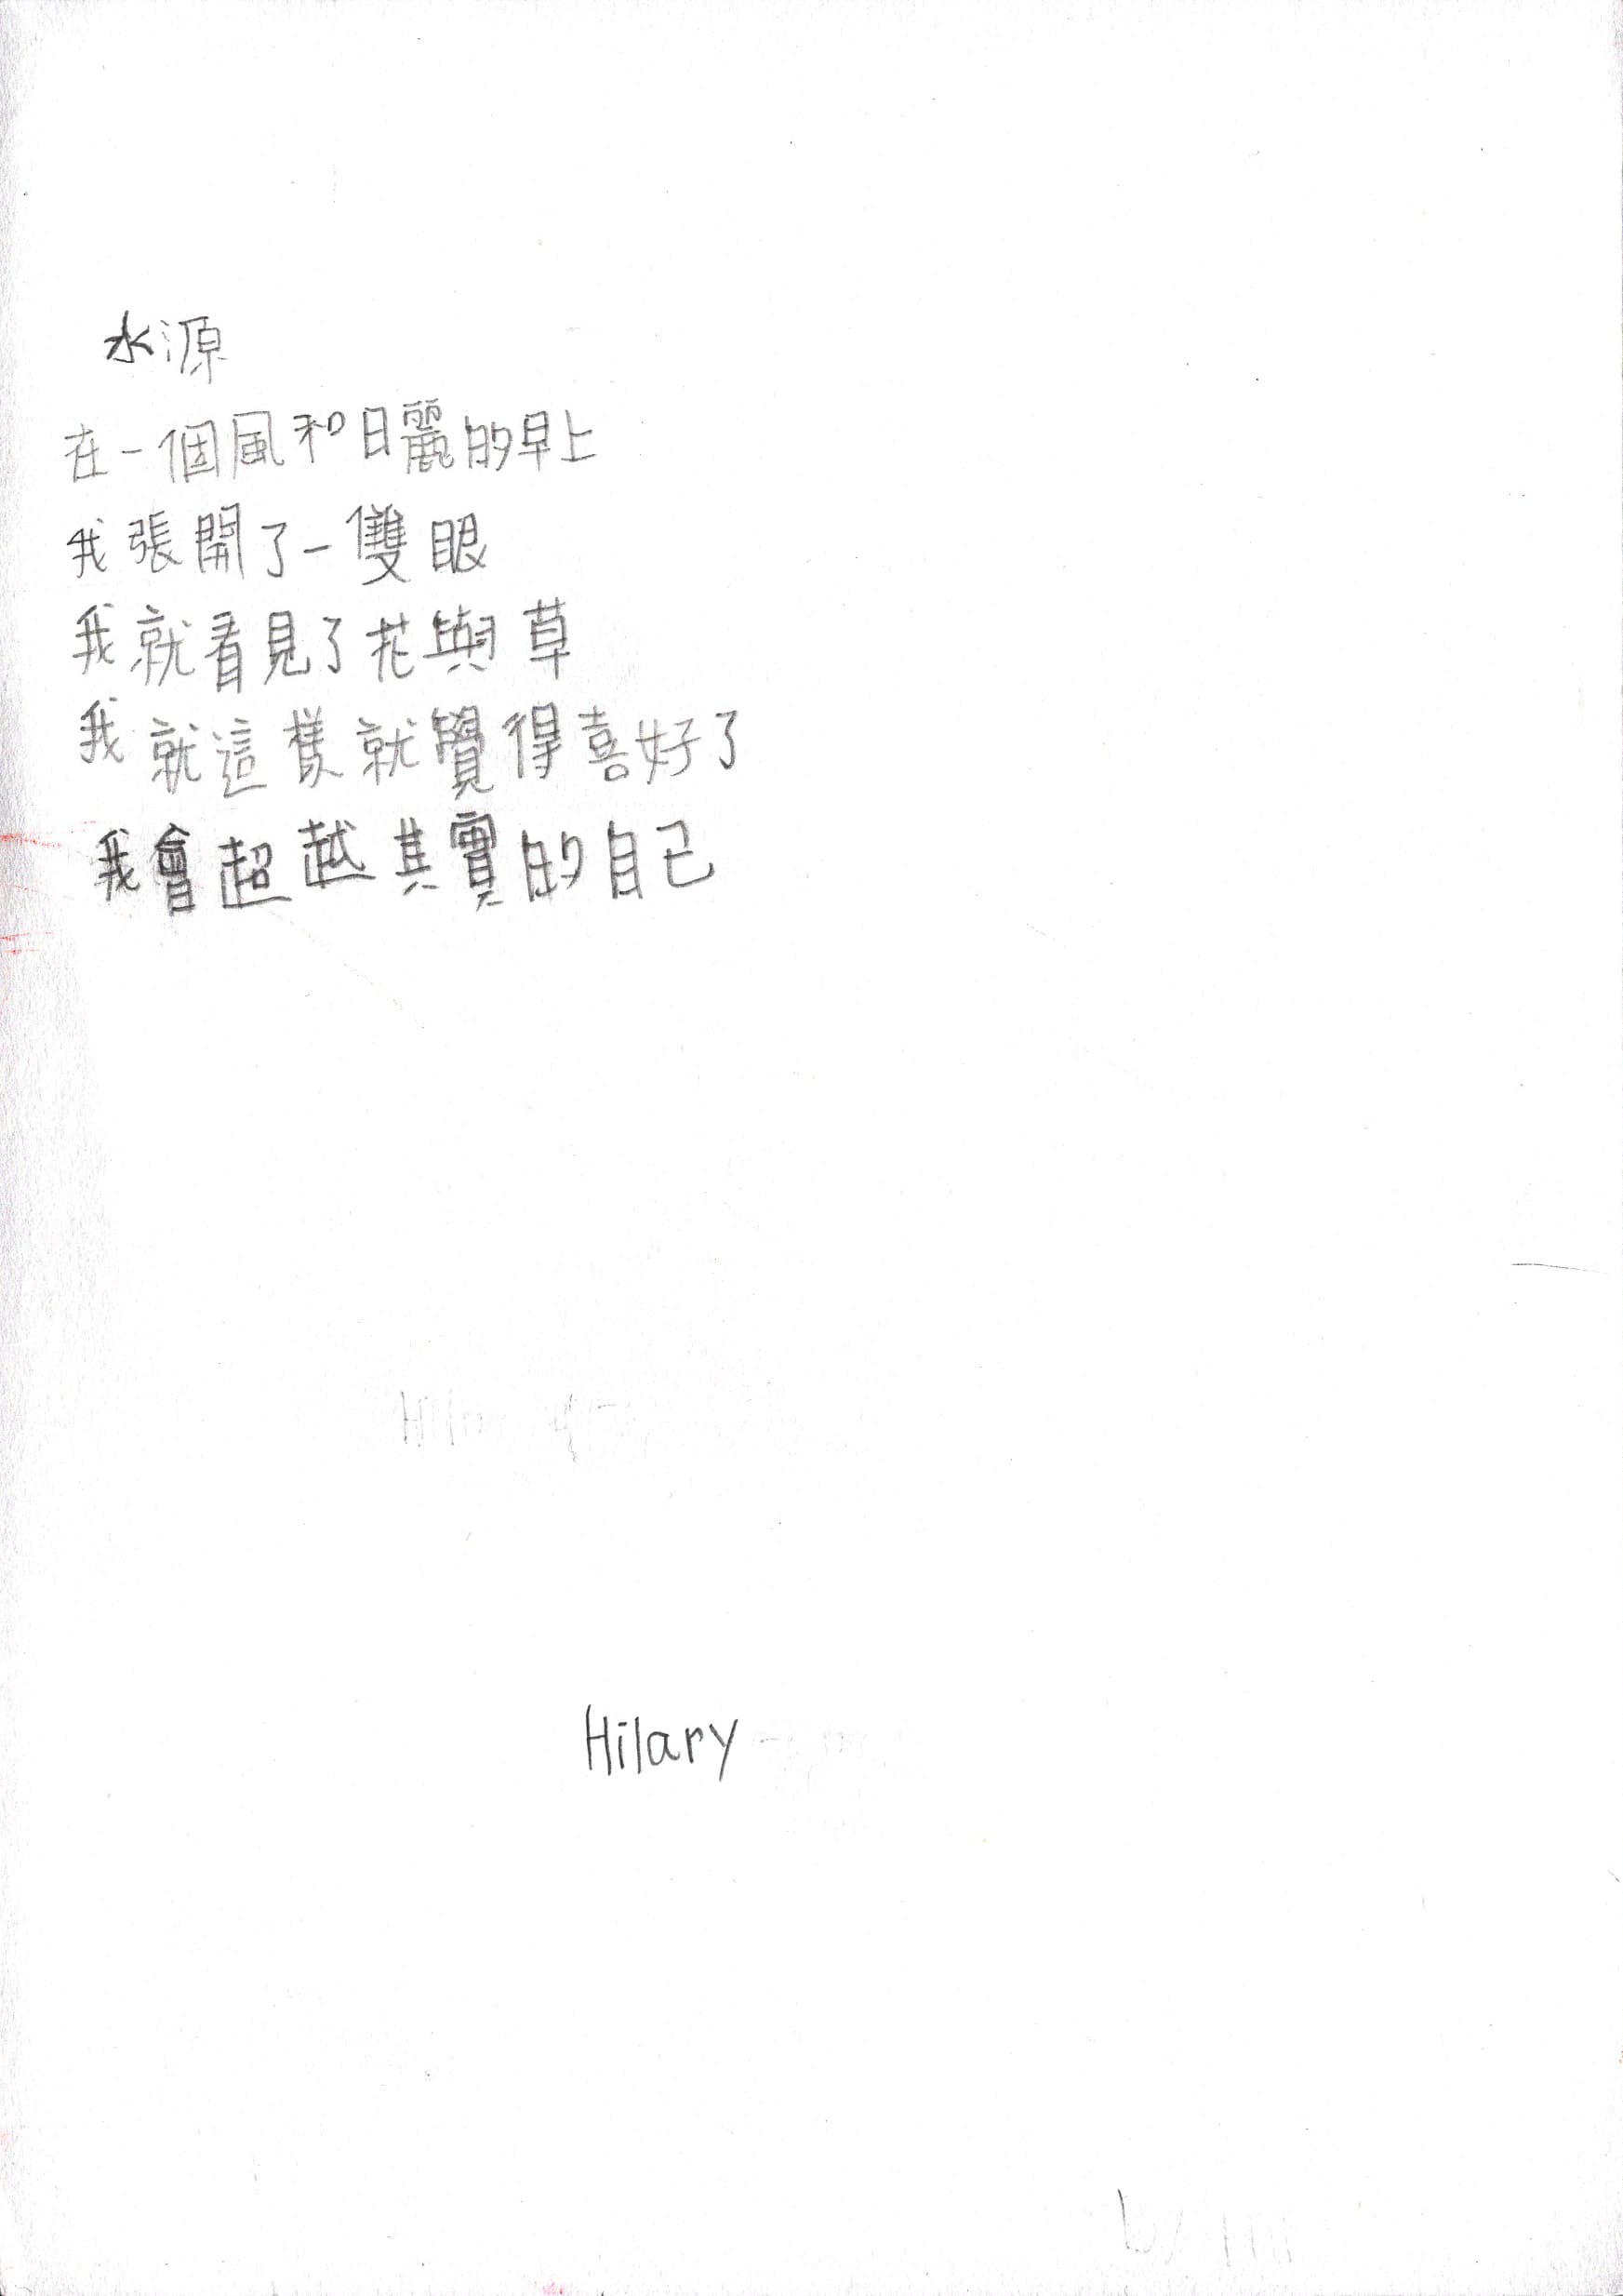 水源
在一個風和日麗的早上
我張開了一雙眼
我就看見了花與草
我就這樣就覺得喜好了
我會超越其實的自己
Hilary